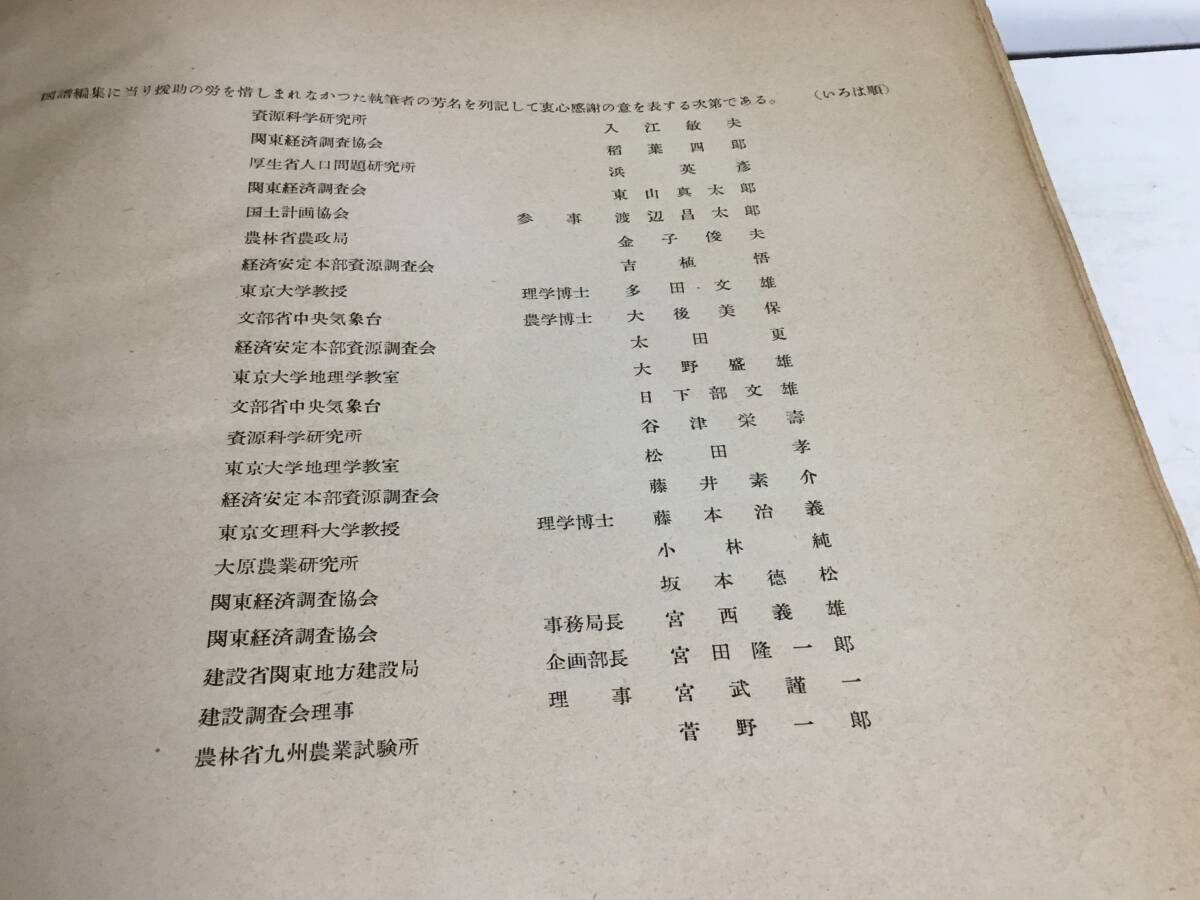 図譜編集に当り援助の労を惜しまれなかつた執筆者の芳名を列記して衷心感謝の意を表する次第である。 (いろは順)
資源科学研究所 入江敏夫
関東経済調査協会 稲葉四郎
厚生省人口問題研究所 浜英彦
関東経済調査会 東山真太郎
国土計画協会 参事 渡辺昌太郎
農林省農政局 金子俊夫
経済安定本部資源調査会 吉植悟
東京大学教授 理学博士 多田文雄
文部省中央気象台 農学博士 大後美保
経済安定本部資源調査会 太田更
東京大学地理学教室 大野盛雄
文部省中央気象台 日下部文雄
資源科学研究所 谷津栄壽
東京大学地理学教室 松田孝
経済安定本部資源調査会 藤井素介
東京文理科大学教授 理学博士 藤本治義
大原農業研究所 小林純
関東経済調査協会 坂本徳松
関東経済調査協会 事務局長 宮西義雄
建設省関東地方建設局 企画部長 宮田隆一郎
建設調査会理事 理事 宮武謹一
農林省九州農業試験所 菅野一郎